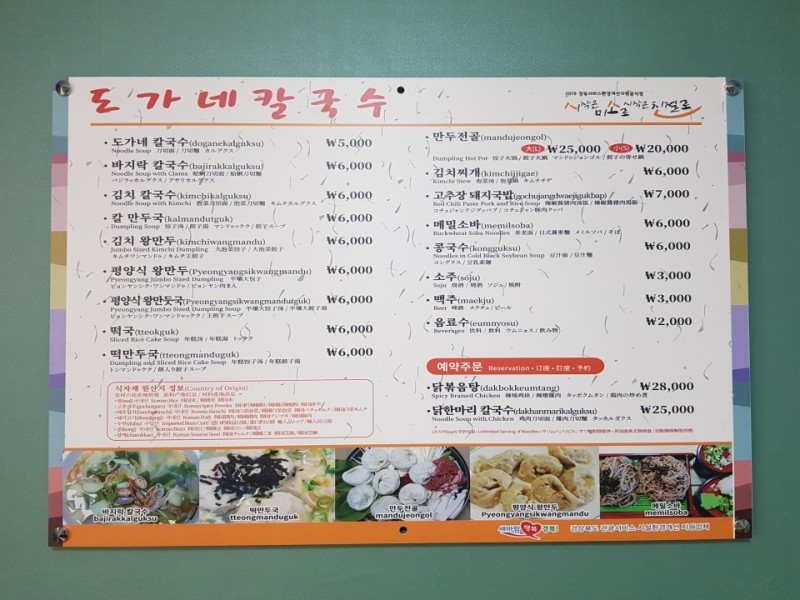 도가네칼국수
시작은 미소로 시작은 친절로
도가네 칼국수(doganekalguksu) ₩5,000
Noodle Soup 刀切面 / 刀切麵 カルグクス
바지락 칼국수(bajirakkalguksu) ₩6,000
Noodle Soup with Clams 蛤蜊刀切面 / 蛤蜊刀切麵
バジラッカルグクス / アサリカルグクス
김치 칼국수(kimchikalguksu) ₩6,000
Noodle Soup with Kimchi 泡菜刀切面 / 泡菜刀切麵 キムチカルグクス
칼 만두국(kalmandutguk) ₩6,000
Dumpling Soup 饺子汤 / 餃子湯 マンドゥックク / 餃子スープ
김치 왕만두(kimchiwangmandu) ₩6,000
Jumbo Sized Kimchi Dumpling 大泡菜饺子 / 大泡菜餃子
キムチワンマンドゥ / キムチ王餃子
평양식 왕만두(Pyeongyangsikwangmandu) ₩6,000
Pyeongyang Jumbo Sized Dumpling 平壤大包子
ピョンヤンシク・ワンマンドゥ / ピョンヤン肉まん
평양식 왕만둣국(Pyeongyangsikwangmandutguk) ₩6,000
Pyeongyang Jumbo Sized Dumpling Soup 平壤大饺子汤 / 平壤大餃子湯
ピョンヤンシク・ワンマンドゥックク / 王餃子スープ
떡국(tteokguk) ₩6,000
Sliced Rice Cake Soup 年糕汤 / 年糕湯 トックク
떡만두국(tteongmanduguk) ₩6,000
Dumpling and Sliced Rice Cake Soup 年糕饺子汤 / 年糕餃子湯
トンマンドゥクク / 餅入り餃子スープ
식자재 원산지 정보(Country of Origin)
만두전골(mandujeongol)
大(L) ₩25,000 小(S) ₩20,000
Dumpling Hot Pot 饺子火锅 / 餃子火鍋 マンドゥジョンゴル / 餃子の寄せ鍋
김치찌개(kimchijjigae) ₩6,000
Kimchi Stew 泡菜汤 / 泡菜湯 キムチチゲ
고추장 돼지국밥(gochujangdwaejigukbap) ₩7,000
Red Chili Paste Pork and Rice Soup 辣椒酱猪肉汤饭 / 辣椒醬豬肉湯飯
コチュジャンテジグッパプ / コチュジャン豚肉クッパ
메밀소바(memilsoba) ₩6,000
Buckwheat Soba Noodles 荞麦面 / 日式蕎麥麵 メミルソバ / そば
콩국수(kongguksu) ₩6,000
Noodles in Cold Black Soybean Soup 豆汁面 / 豆汁麵
コングクス / 豆乳素麺
소주(soju) ₩3,000
Soju 烧酒 / 燒酒 ソジュ / 焼酎
맥주(maekju) ₩3,000
Beer 啤酒 メクチュ / ビール
음료수(eumnyosu) ₩2,000
Beverages 饮料 / 飲料 ウムニョス / 飲み物
예약주문 Reservation · 订座 · 訂座 · 予約
닭볶음탕(dakbokkeumtang) ₩28,000
Spicy Braised Chicken 辣炖鸡块 / 辣燉雞肉 タッポクムタン / 鶏肉の炒め煮
닭한마리 칼국수(dakhanmarikalguksu) ₩25,000
Noodle Soup with Chicken 鸡肉刀切面 / 雞肉刀切麵 タッカルグクス
바지락 칼국수
bajirakkalguksu
떡만두국
tteongmanduguk
만두전골
mandujeongol
평양식 왕만두
Pyeongyangsikwangmandu
메밀소바
memilsoba
새바람 행복 경북! 경상북도 관광서비스 시설환경개선 지원업체